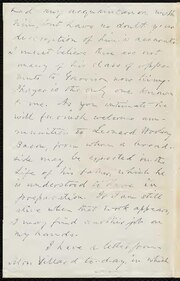 had any acquaintance with
him, but have no doubt your
description of him is accurate.
I must believe there are not
many of his class of oppo-
nents to Garrison now living.
Thayer is the only one known
to me. As you intimate he
will furnish welcome am-
munition to Leonard Woolsey
Bacon, from whom a broad-
side may be expected in the
Life of his father, which he
is understood to have in
preparation. If I am still
alive when that work appears,
I may find another job on
my hands.
I have a letter from
Mrs. Villard to-day in which